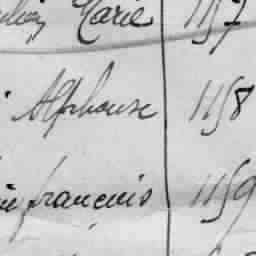 Marie 1157
Alphonse 1158
françois 1159